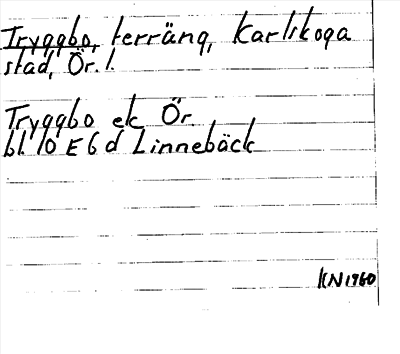 Tryggbo, terräng, Karlskoga
stad, Ör. l.
Tryggbo ek Ör.
bl 10 E 6 d Linnebäck
KN 1960